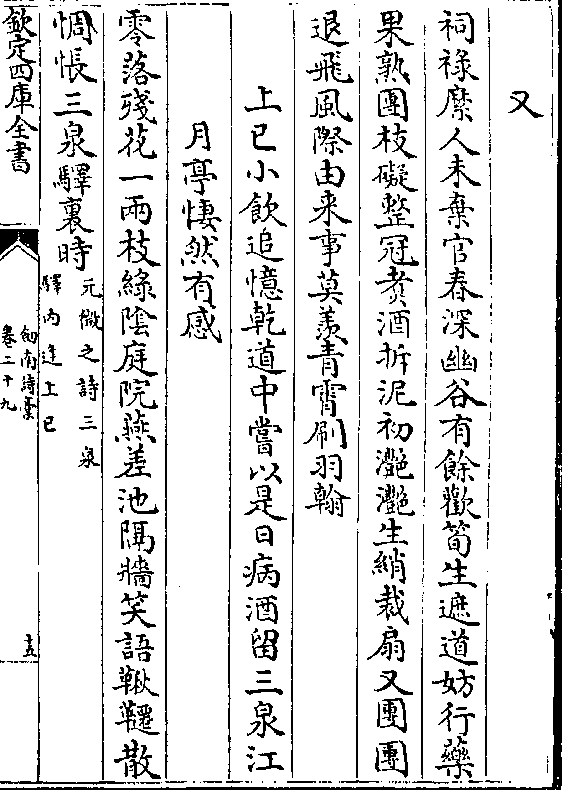 又
祠祿縻人未棄官春深幽谷有餘歡筍生遮道妨行藥
果熟團枝礙整冠煑酒拆泥初灔灔生綃裁扇又團團
退飛風際由来事莫羨青霄刷羽翰
上巳小飲追憶乾道中嘗以是日病酒留三泉江
月亭悽然有感
零落殘花一兩枝綠陰庭院燕差池隔牆笑語鞦韆散
惆悵三泉驛裏時元微之詩三泉
驛内逢上巳
欽定四庫全書
劍南詩藁
卷二十九
五